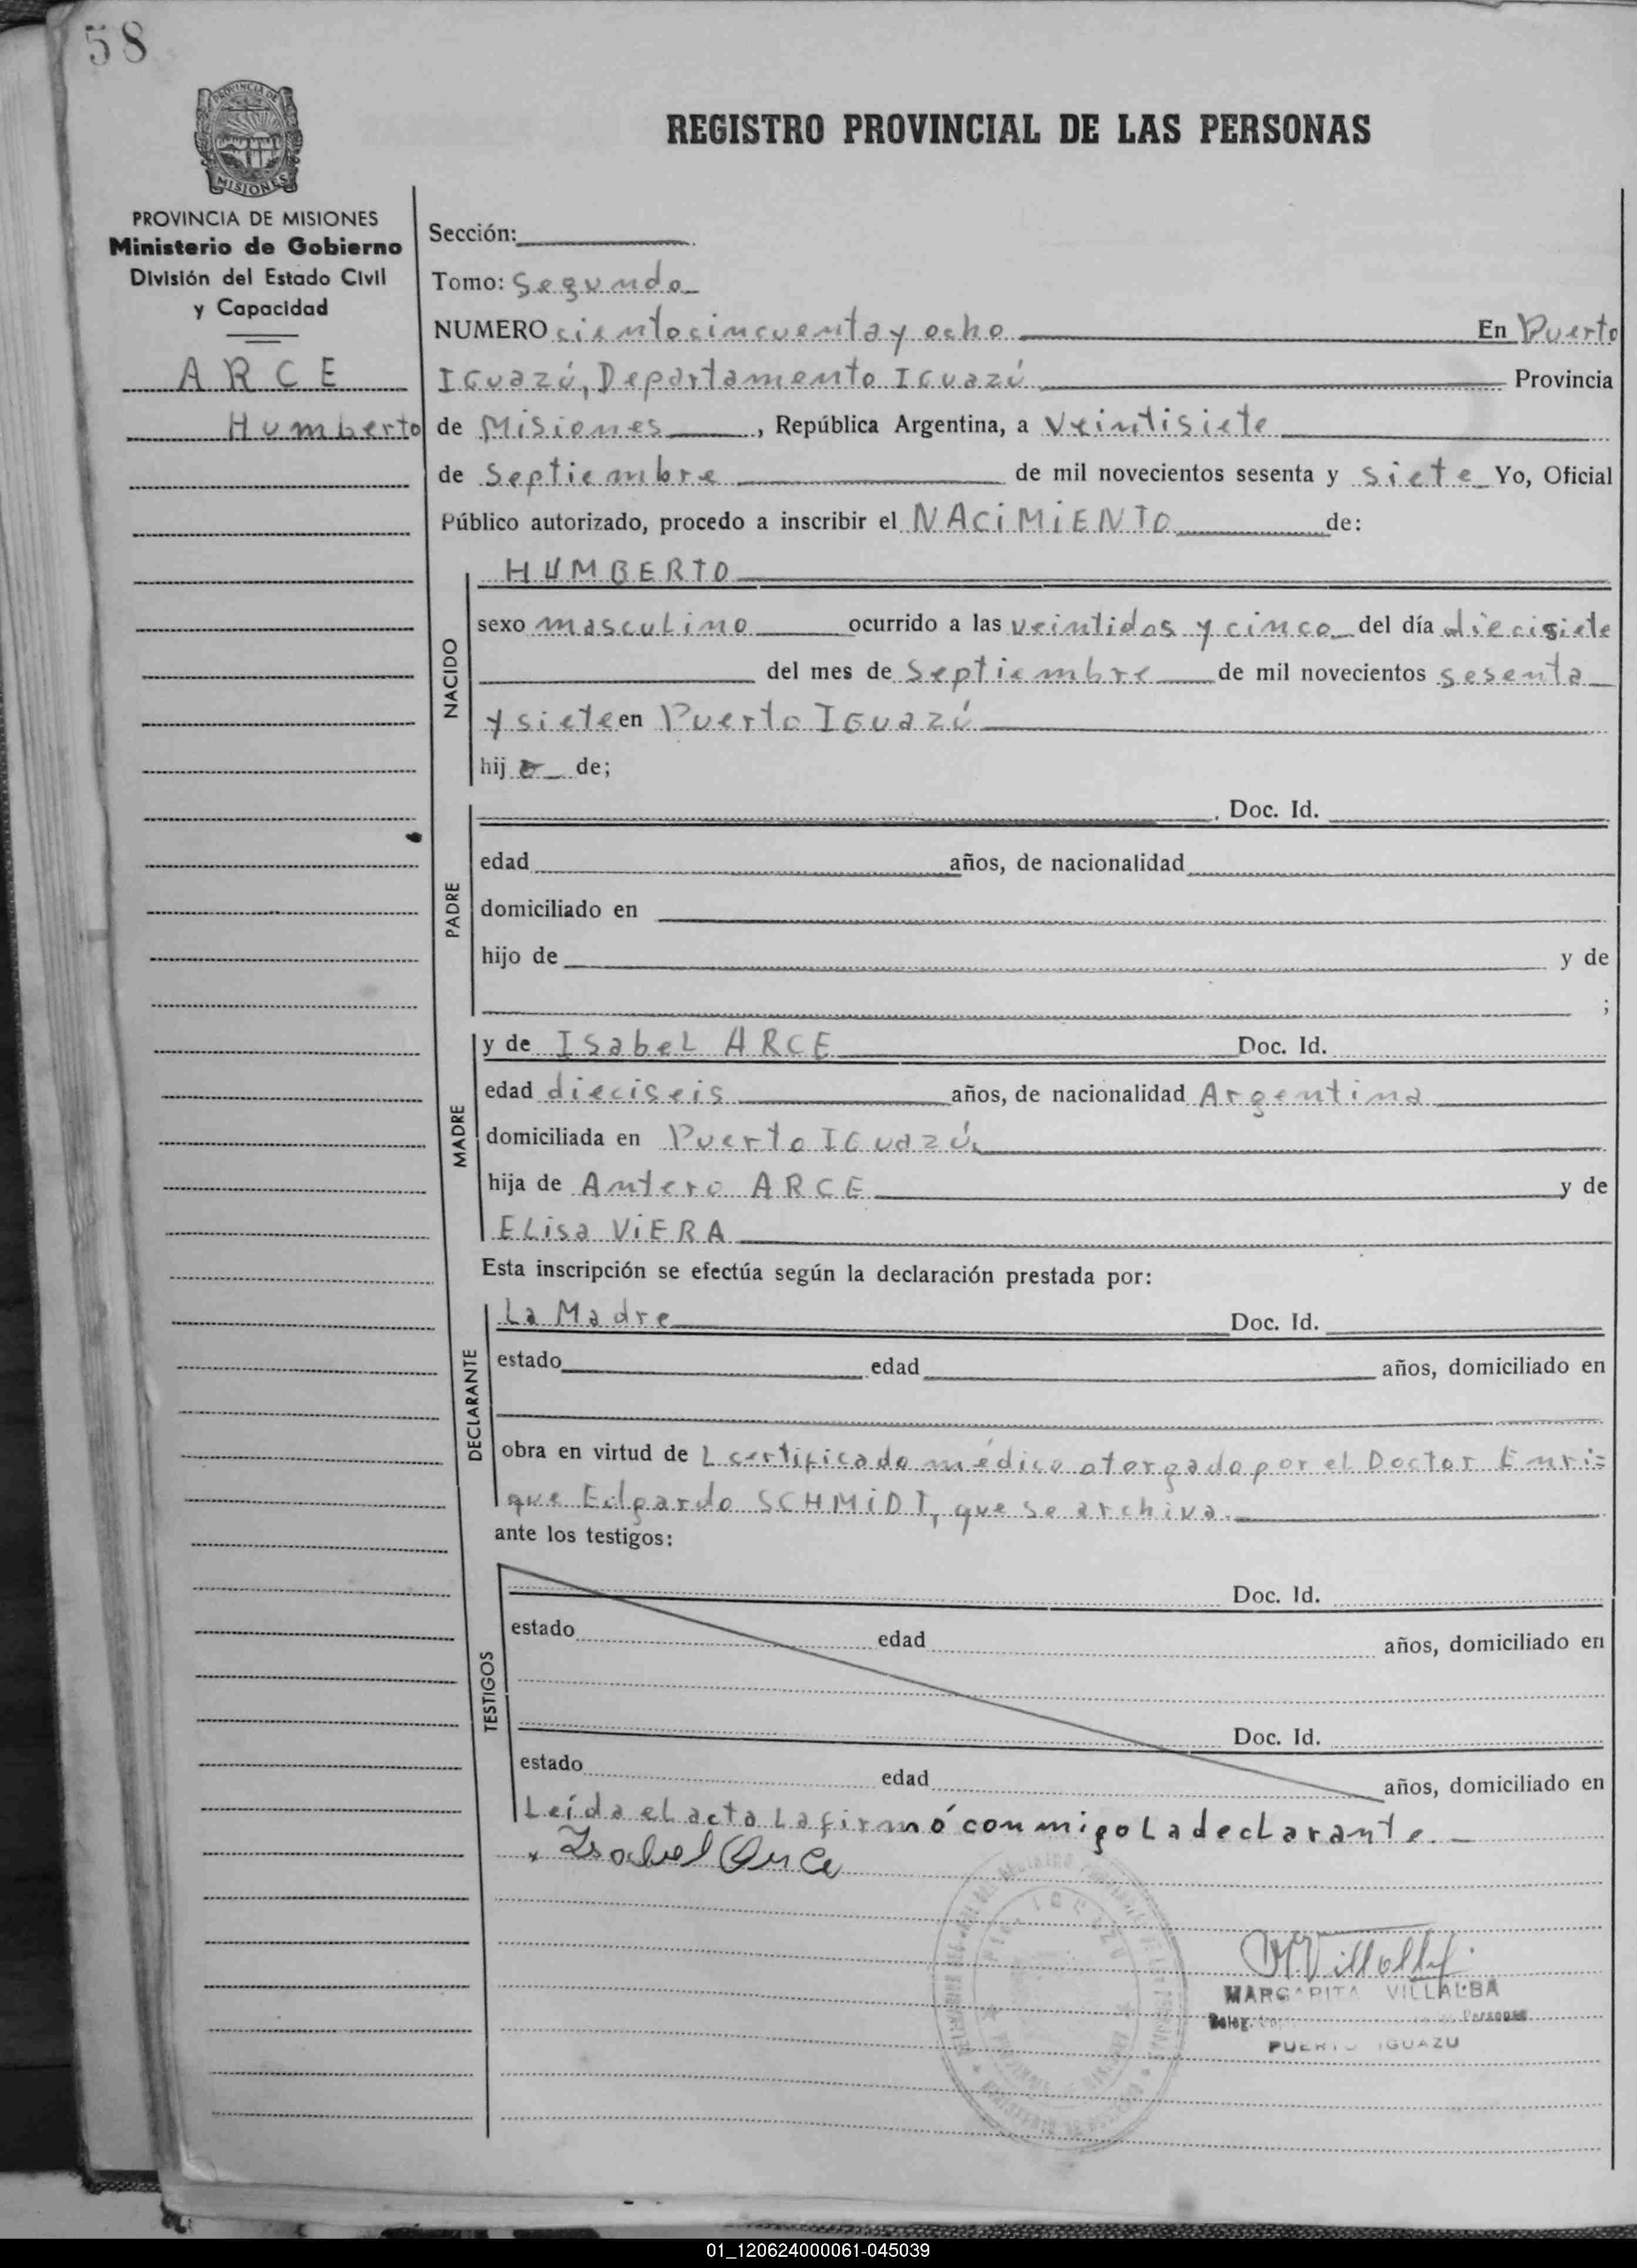 58
PROVINCIA DE
MISIONES
REGISTRO PROVINCIAL DE LAS PERSONAS
PROVINCIA DE MISIONES
Ministerio de Gobierno
División del Estado Civil
y Capacidad
ARCE
Humberto
Sección:
Tomo: Segundo
NUMERO ciento cincuenta y ocho En Puerto
Iguazú, Departamento Iguazú Provincia
de Misiones, República Argentina, a veintisiete
de Septiembre de mil novecientos sesenta y siete Yo, Oficial
Público autorizado, procedo a inscribir el NACiMiENTO de:
NACIDO
HUMBERTO
sexo masculino ocurrido a las veintidos y cinco del día diecisiete
del mes de Septiembre de mil novecientos sesenta
y siete en Puerto Iguazú
hijo de;
PADRE
, Doc. Id.
edad años, de nacionalidad
domiciliado en
hijo de y de
;
MADRE
y de Isabel ARCE Doc. Id.
edad dieciseis años, de nacionalidad Argentina
domiciliada en Puerto Iguazú
hija de Antero ARCE y de
Elisa ViERA
Esta inscripción se efectúa según la declaración prestada por:
DECLARANTE
La Madre Doc. Id.
estado edad años, domiciliado en
obra en virtud de l certificado médico otorgado por el Doctor Enri=
que Edgardo SCHMiDT, que se archiva.
ante los testigos:
TESTIGOS
Doc. Id.
estado edad años, domiciliado en
Doc. Id.
estado edad años, domiciliado en
Leída el acta la firmó conmigo la declarante.
x Isabel Arce
MVillalba
MARGARITA VILLALBA
PUERTO IGUAZU
01_120624000061-045039